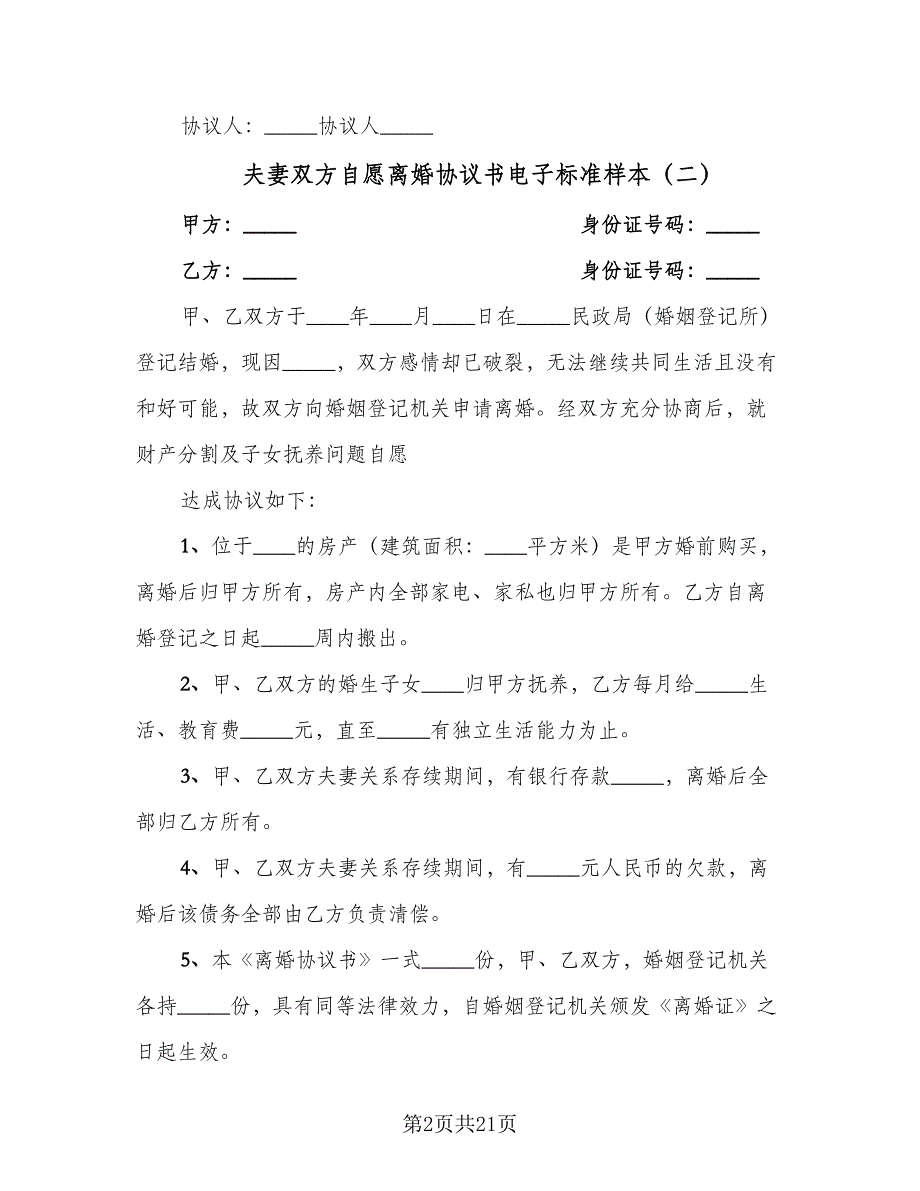 协议人：_____协议人_____
夫妻双方自愿离婚协议书电子标准样本（二）
甲方：_____ 身份证号码：_____
乙方：_____ 身份证号码：_____
甲、乙双方于____年____月____日在_____民政局（婚姻登记所）
登记结婚，现因_____，双方感情却已破裂，无法继续共同生活且没有
和好可能，故双方向婚姻登记机关申请离婚。经双方充分协商后，就
财产分割及子女抚养问题自愿
达成协议如下：
1、位于____的房产（建筑面积：____平方米）是甲方婚前购买，
离婚后归甲方所有，房产内全部家电、家私也归甲方所有。乙方自离
婚登记之日起_____周内搬出。
2、甲、乙双方的婚生子女____归甲方抚养，乙方每月给_____生
活、教育费_____元，直至_____有独立生活能力为止。
3、甲、乙双方夫妻关系存续期间，有银行存款_____，离婚后全
部归乙方所有。
4、甲、乙双方夫妻关系存续期间，有_____元人民币的欠款，离
婚后该债务全部由乙方负责清偿。
5、本《离婚协议书》一式_____份，甲、乙双方，婚姻登记机关
各持_____份，具有同等法律效力，自婚姻登记机关颁发《离婚证》之
日起生效。
第2页共21页